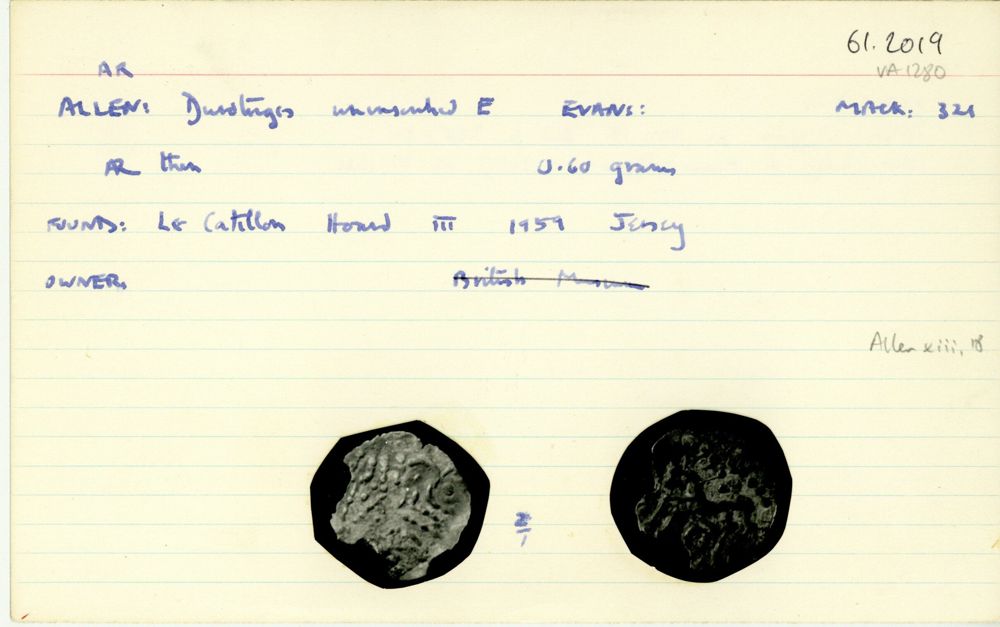 61.2019
VA 1280
AR
ALLEN: Durotriges uninscribed E EVANS: MACK: 321
AR thin 0.60 grams
FOUND: Le Catillon Hoard III 1959 Jersey
OWNER: British Museum
Allen xiii, 18
2/1